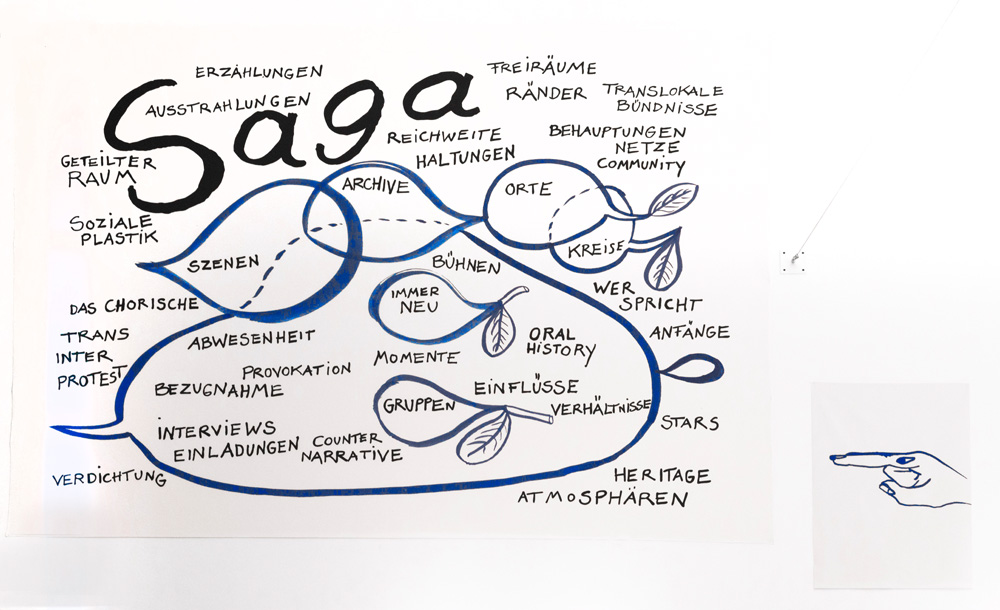 Saga
ERZÄHLUNGEN
AUSSTRAHLUNGEN
FREIRÄUME
RÄNDER
TRANSLOKALE
BÜNDNISSE
REICHWEITE
HALTUNGEN
BEHAUPTUNGEN
NETZE
COMMUNITY
GETEILTER
RAUM
ARCHIVE
ORTE
SOZIALE
PLASTIK
SZENEN
KREISE
BÜHNEN
DAS CHORISCHE
IMMER
NEU
WER
SPRICHT
TRANS
INTER
PROTEST
ABWESENHEIT
ORAL
HISTORY
ANFÄNGE
MOMENTE
PROVOKATION
BEZUGNAHME
EINFLÜSSE
GRUPPEN
VERHÄLTNISSE
STARS
INTERVIEWS
EINLADUNGEN
COUNTER
NARRATIVE
VERDICHTUNG
HERITAGE
ATMOSPHÄREN